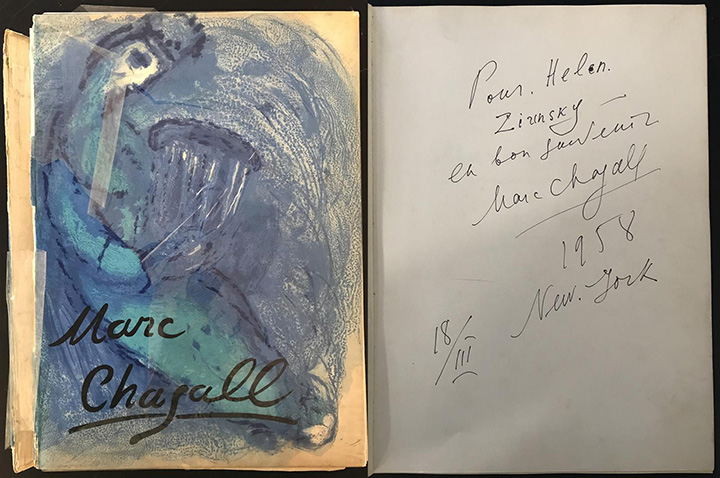 Marc
Chagall
Pour. Helen.
Zirinsky
en bon souvenir
Marc Chagall
1958
New. York
18/III